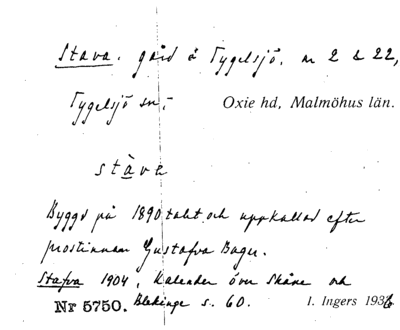 Stava. gård å Tygelsjö, nr 2 & 22,
Tygelsjö sn,- Oxie hd, Malmöhus län.
stàvæ
Byggd på 1890 talet och uppkallad efter
prostinnan Gustafva Bager.
Stafva 1904, Kalender över Skåne och
Nr 5750. Blekinge s. 60. I. Ingers 1936